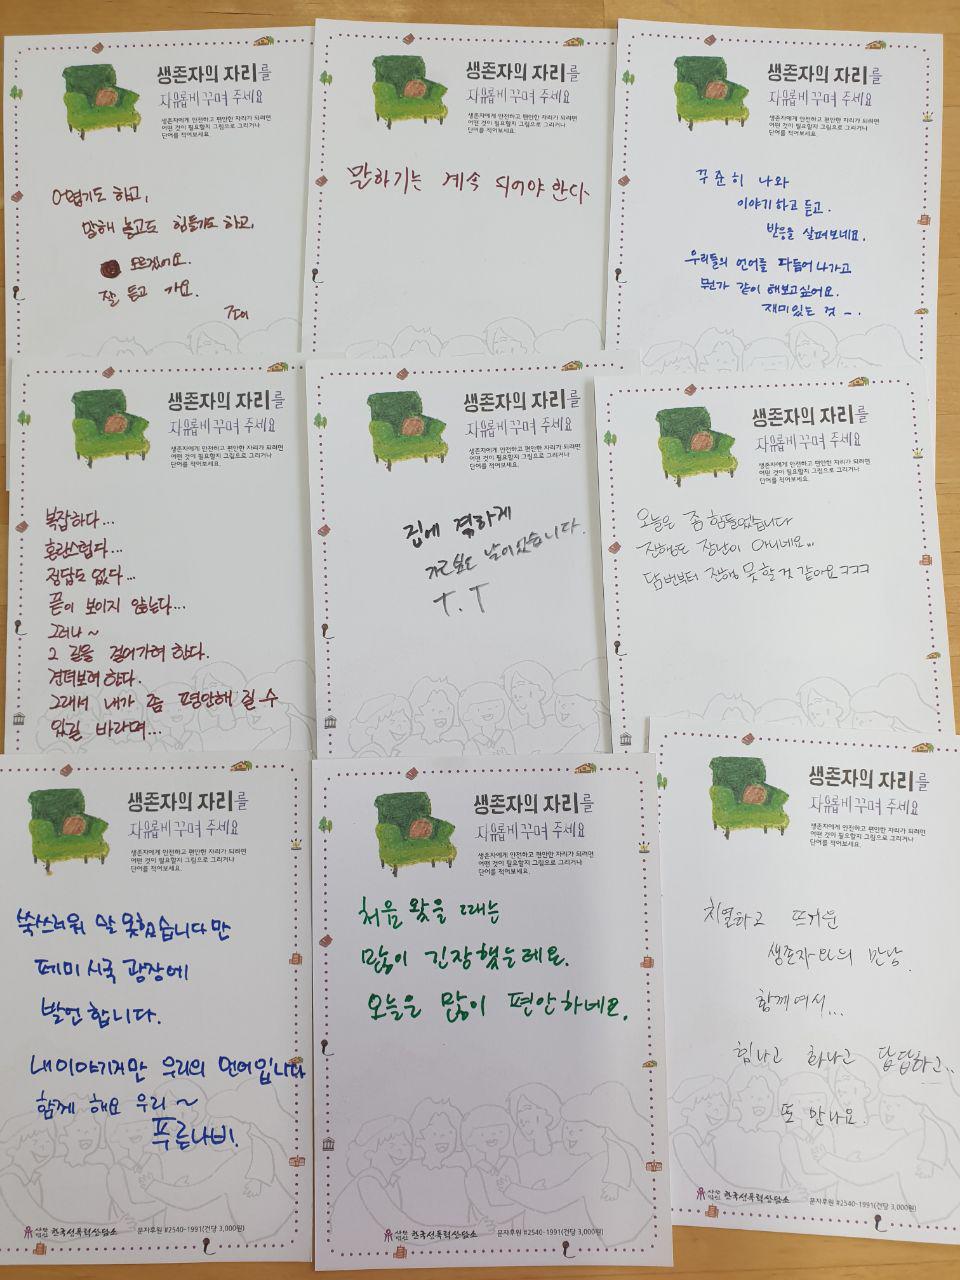 생존자의 자리를
자유롭게 꾸며 주세요
생존자에게 안전하고 편안한 자리가 되려면
어떤 것이 필요할지 그림으로 그리거나
단어를 적어보세요.
어렵기도 하고,
말해 놓고도 힘들기도 하고,
모르겠어요.
잘 듣고 가요.
생존자의 자리를
자유롭게 꾸며 주세요
생존자에게 안전하고 편안한 자리가 되려면
어떤 것이 필요할지 그림으로 그리거나
단어를 적어보세요.
말하기는 계속 되어야 한다.
생존자의 자리를
자유롭게 꾸며 주세요
생존자에게 안전하고 편안한 자리가 되려면
어떤 것이 필요할지 그림으로 그리거나
단어를 적어보세요.
꾸준히 나와
이야기하고 듣고.
반응을 살펴보네요.
우리들의 언어를 다듬어 나가고
뭔가 같이 해보고싶어요.
재미있는 것 ~.
생존자의 자리를
자유롭게 꾸며 주세요
생존자에게 안전하고 편안한 자리가 되려면
어떤 것이 필요할지 그림으로 그리거나
단어를 적어보세요.
복잡하다...
혼란스럽다...
정답도 없다...
끝이 보이지 않는다...
그러나~
그 길을 걸어가려 한다.
견뎌보려 한다.
그래서 내가 좀 평안해 질 수
있길 바라며...
생존자의 자리를
자유롭게 꾸며 주세요
생존자에게 안전하고 편안한 자리가 되려면
어떤 것이 필요할지 그림으로 그리거나
단어를 적어보세요.
집에 격하게
가고싶은 날이었습니다.
T.T
생존자의 자리를
자유롭게 꾸며 주세요
생존자에게 안전하고 편안한 자리가 되려면
어떤 것이 필요할지 그림으로 그리거나
단어를 적어보세요.
오늘은 좀 힘들었습니다
진행도 장난이 아니네요...
담번부터 진행 못할 것 같아요 ㅋㅋㅋ
생존자의 자리를
자유롭게 꾸며 주세요
생존자에게 안전하고 편안한 자리가 되려면
어떤 것이 필요할지 그림으로 그리거나
단어를 적어보세요.
쑥쓰러워 말 못했습니다만
페미시국 광장에
발언합니다.
내이야기지만 우리의 언어입니다
함께 해요 우리~
푸른나비.
사단법인 한국성폭력상담소
문자후원 #2540-1991(건당 3,000원)
생존자의 자리를
자유롭게 꾸며 주세요
생존자에게 안전하고 편안한 자리가 되려면
어떤 것이 필요할지 그림으로 그리거나
단어를 적어보세요.
처음 왔을 때는
많이 긴장했는데요.
오늘은 많이 편안하네요.
사단법인 한국성폭력상담소
문자후원 #2540-1991(건당 3,000원)
생존자의 자리를
자유롭게 꾸며 주세요
생존자에게 안전하고 편안한 자리가 되려면
어떤 것이 필요할지 그림으로 그리거나
단어를 적어보세요.
치열하고 뜨거운
생존자와의 만남.
함께여서...
힘나고 화나고 답답하고..
또 만나요.
사단법인 한국성폭력상담소
문자후원 #2540-1991(건당 3,000원)